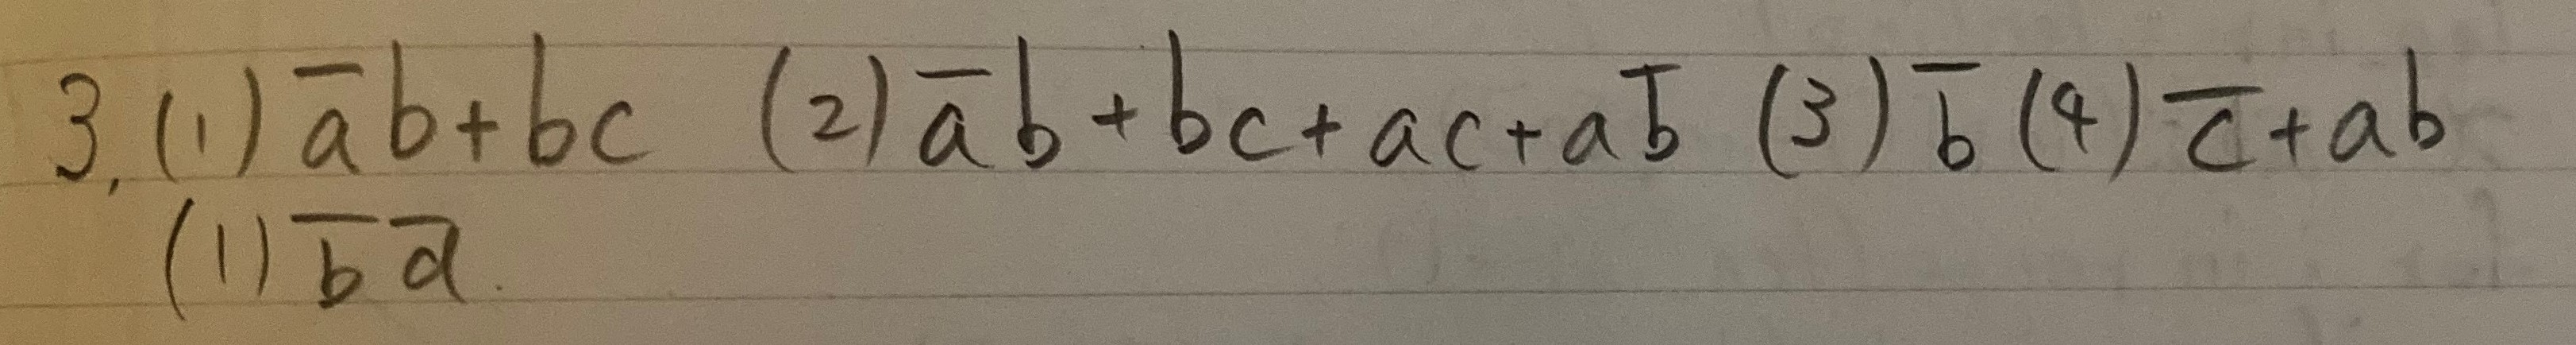 3. (1) a̅b+bc (2) a̅b+bc+ac+ab̅ (3) b̅ (4) c̅+ab
(1) b̅ d̅.